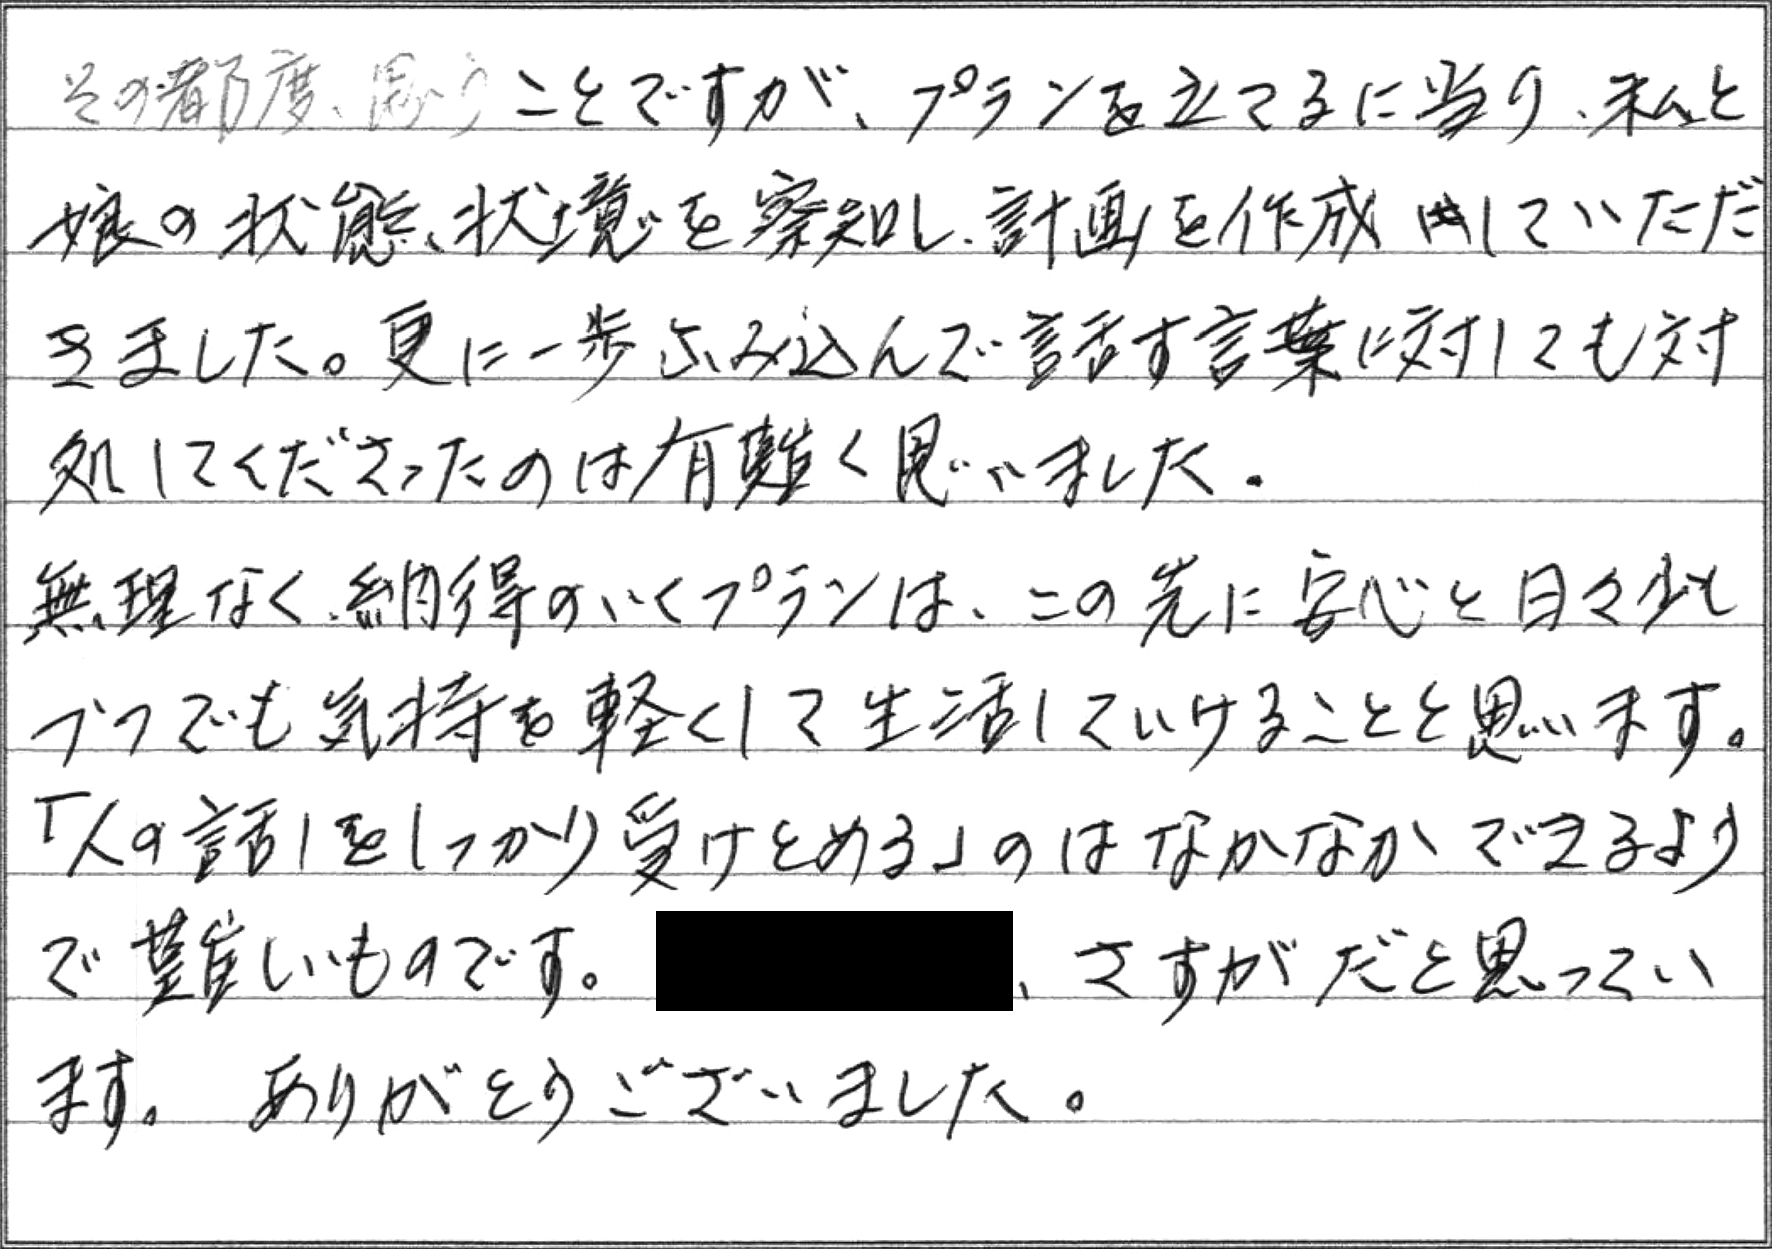 その都度、思うことですが、プランを立てるに当り、私と
娘の状態、状境を察知し、計画を作成していただ
きました。更に一歩ふみ込んで話す言葉に対しても対
処してくださったのは有難く思いました。
無理なく、納得のいくプランは、この先に安心と日々少し
づつでも気持を軽くして生活していけることと思います。
「人の話しをしっかり受けとめる」のはなかなかできるよう
で難しいものです。、さすがだと思ってい
ます。 ありがとうございました。